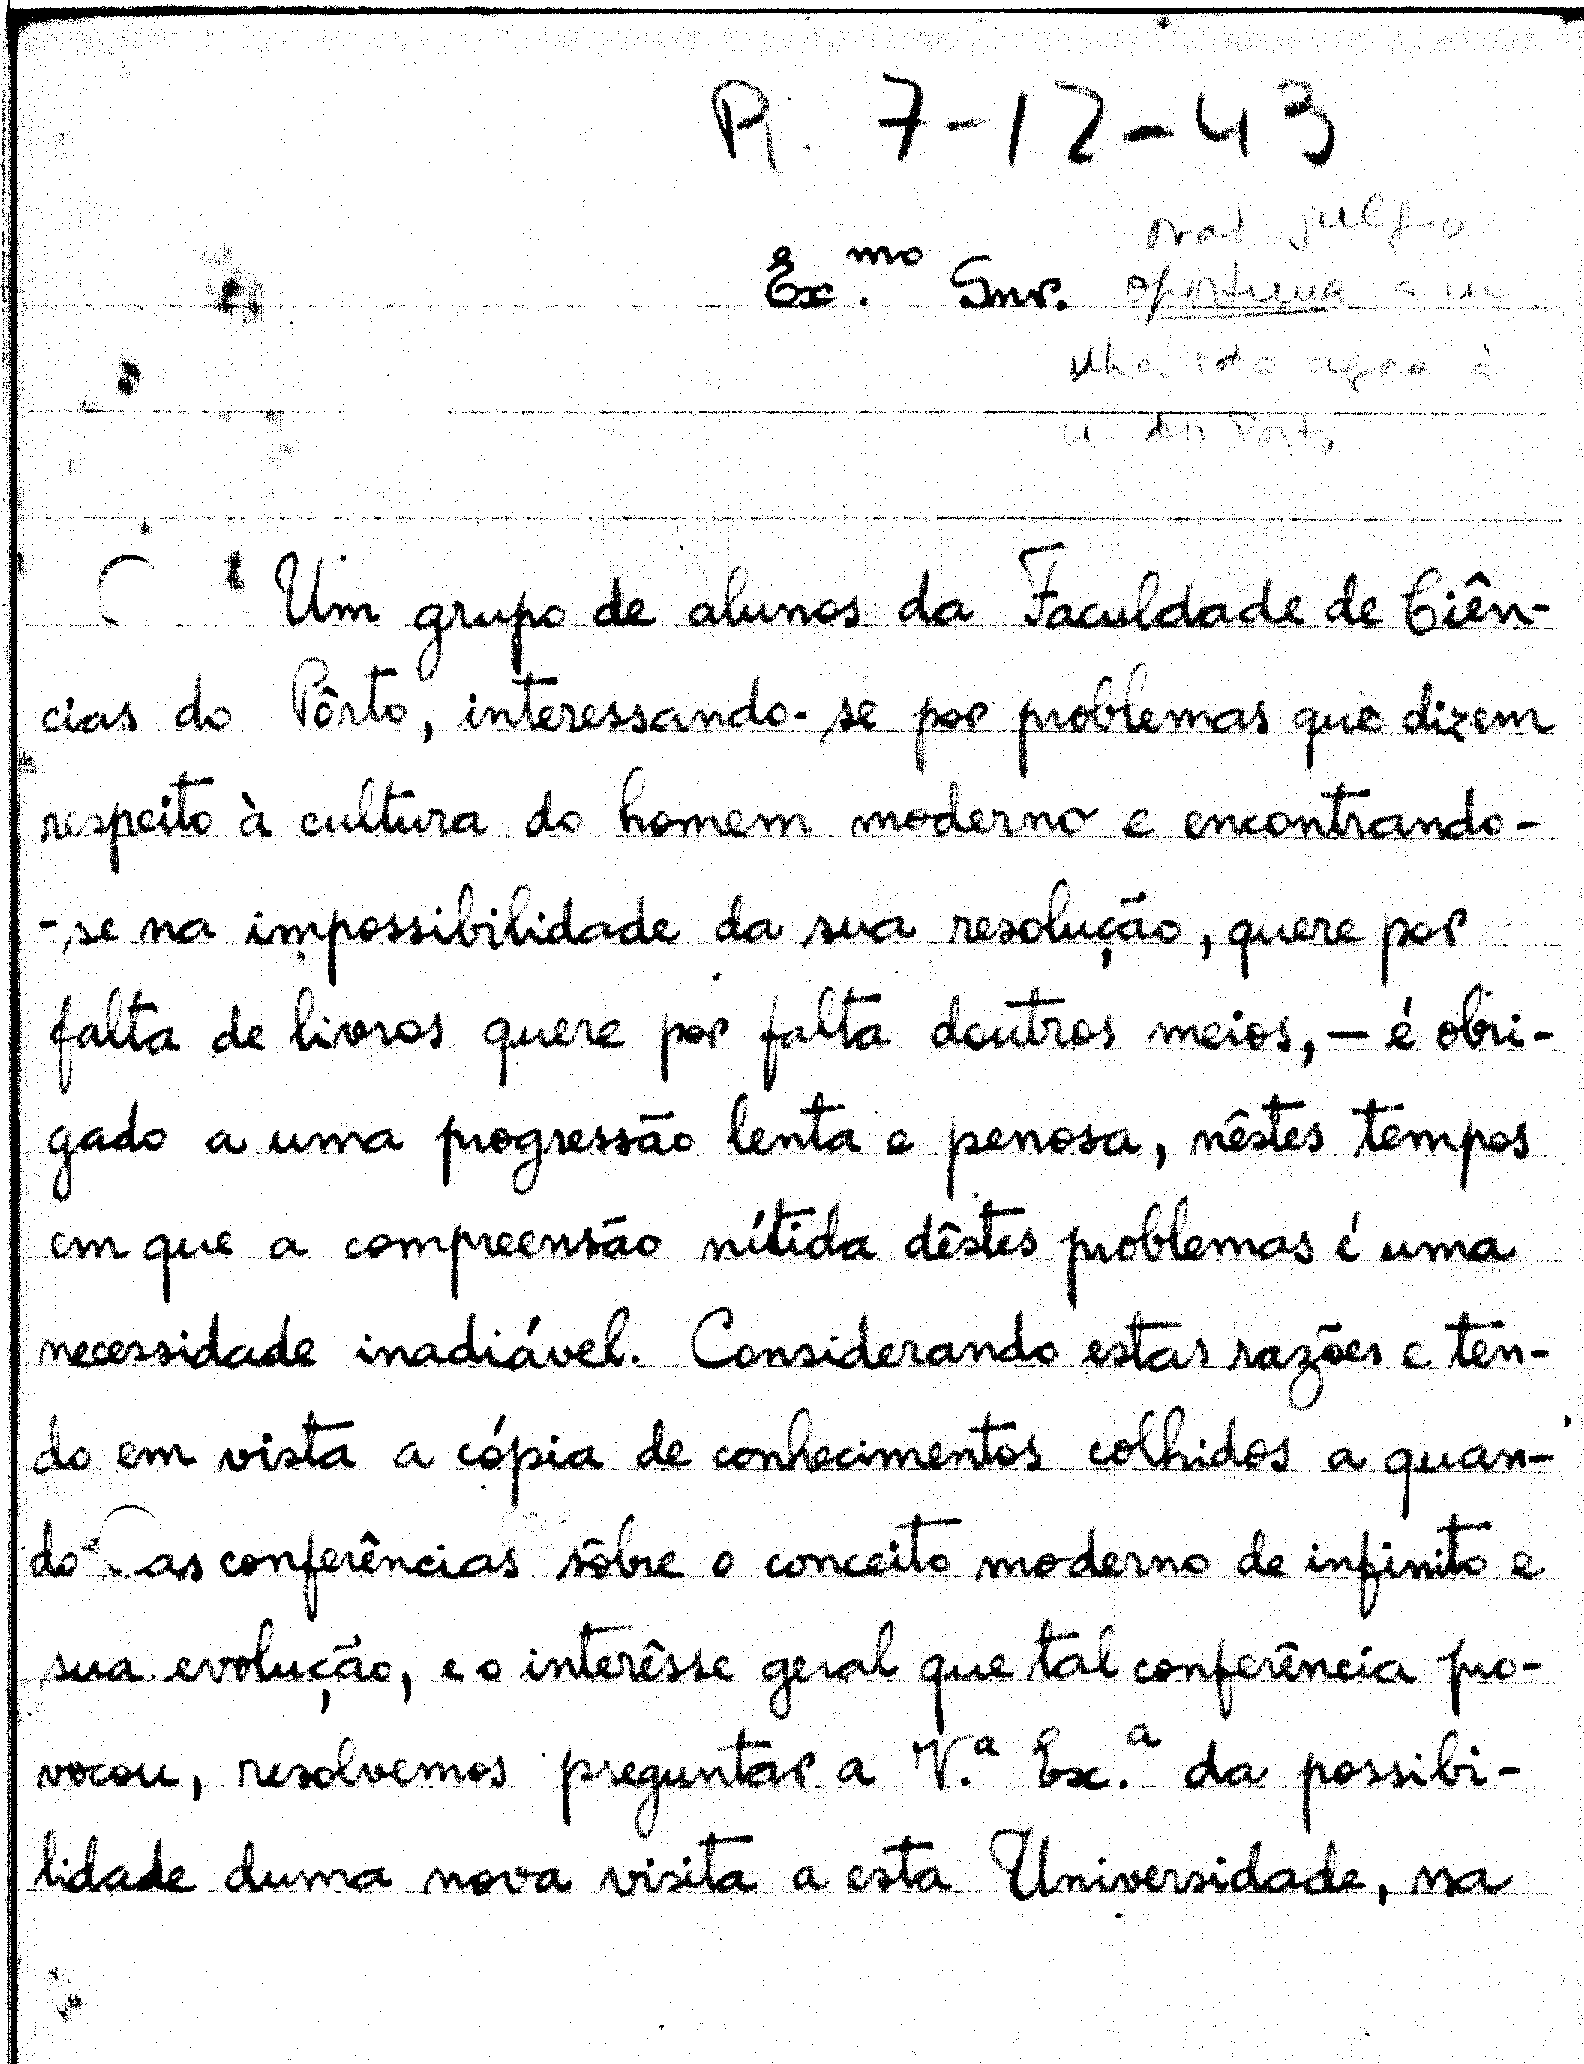 R. 7-12-43
não julgo
Ex.mo Snr. oportuna a mi
nha ida agora à
U do Porto
Um grupo de alunos da Faculdade de Ciên-
cias do Pôrto, interessando-se por problemas que dizem
respeito à cultura do homem moderno e encontrando-
-se na impossibilidade da sua resolução, quere por
falta de livros quere por falta doutros meios, — é obri-
gado a uma progressão lenta e penosa, nêstes tempos
em que a compreensão nítida dêstes problemas é uma
necessidade inadiável. Considerando estas razões e ten-
do em vista a cópia de conhecimentos colhidos a quan-
do as conferências sôbre o conceito moderno de infinito e
sua evolução, e o interêsse geral que tal conferência pro-
vocou, resolvemos preguntar a V.a Ex.a da possibi-
lidade duma nova visita a esta Universidade, na